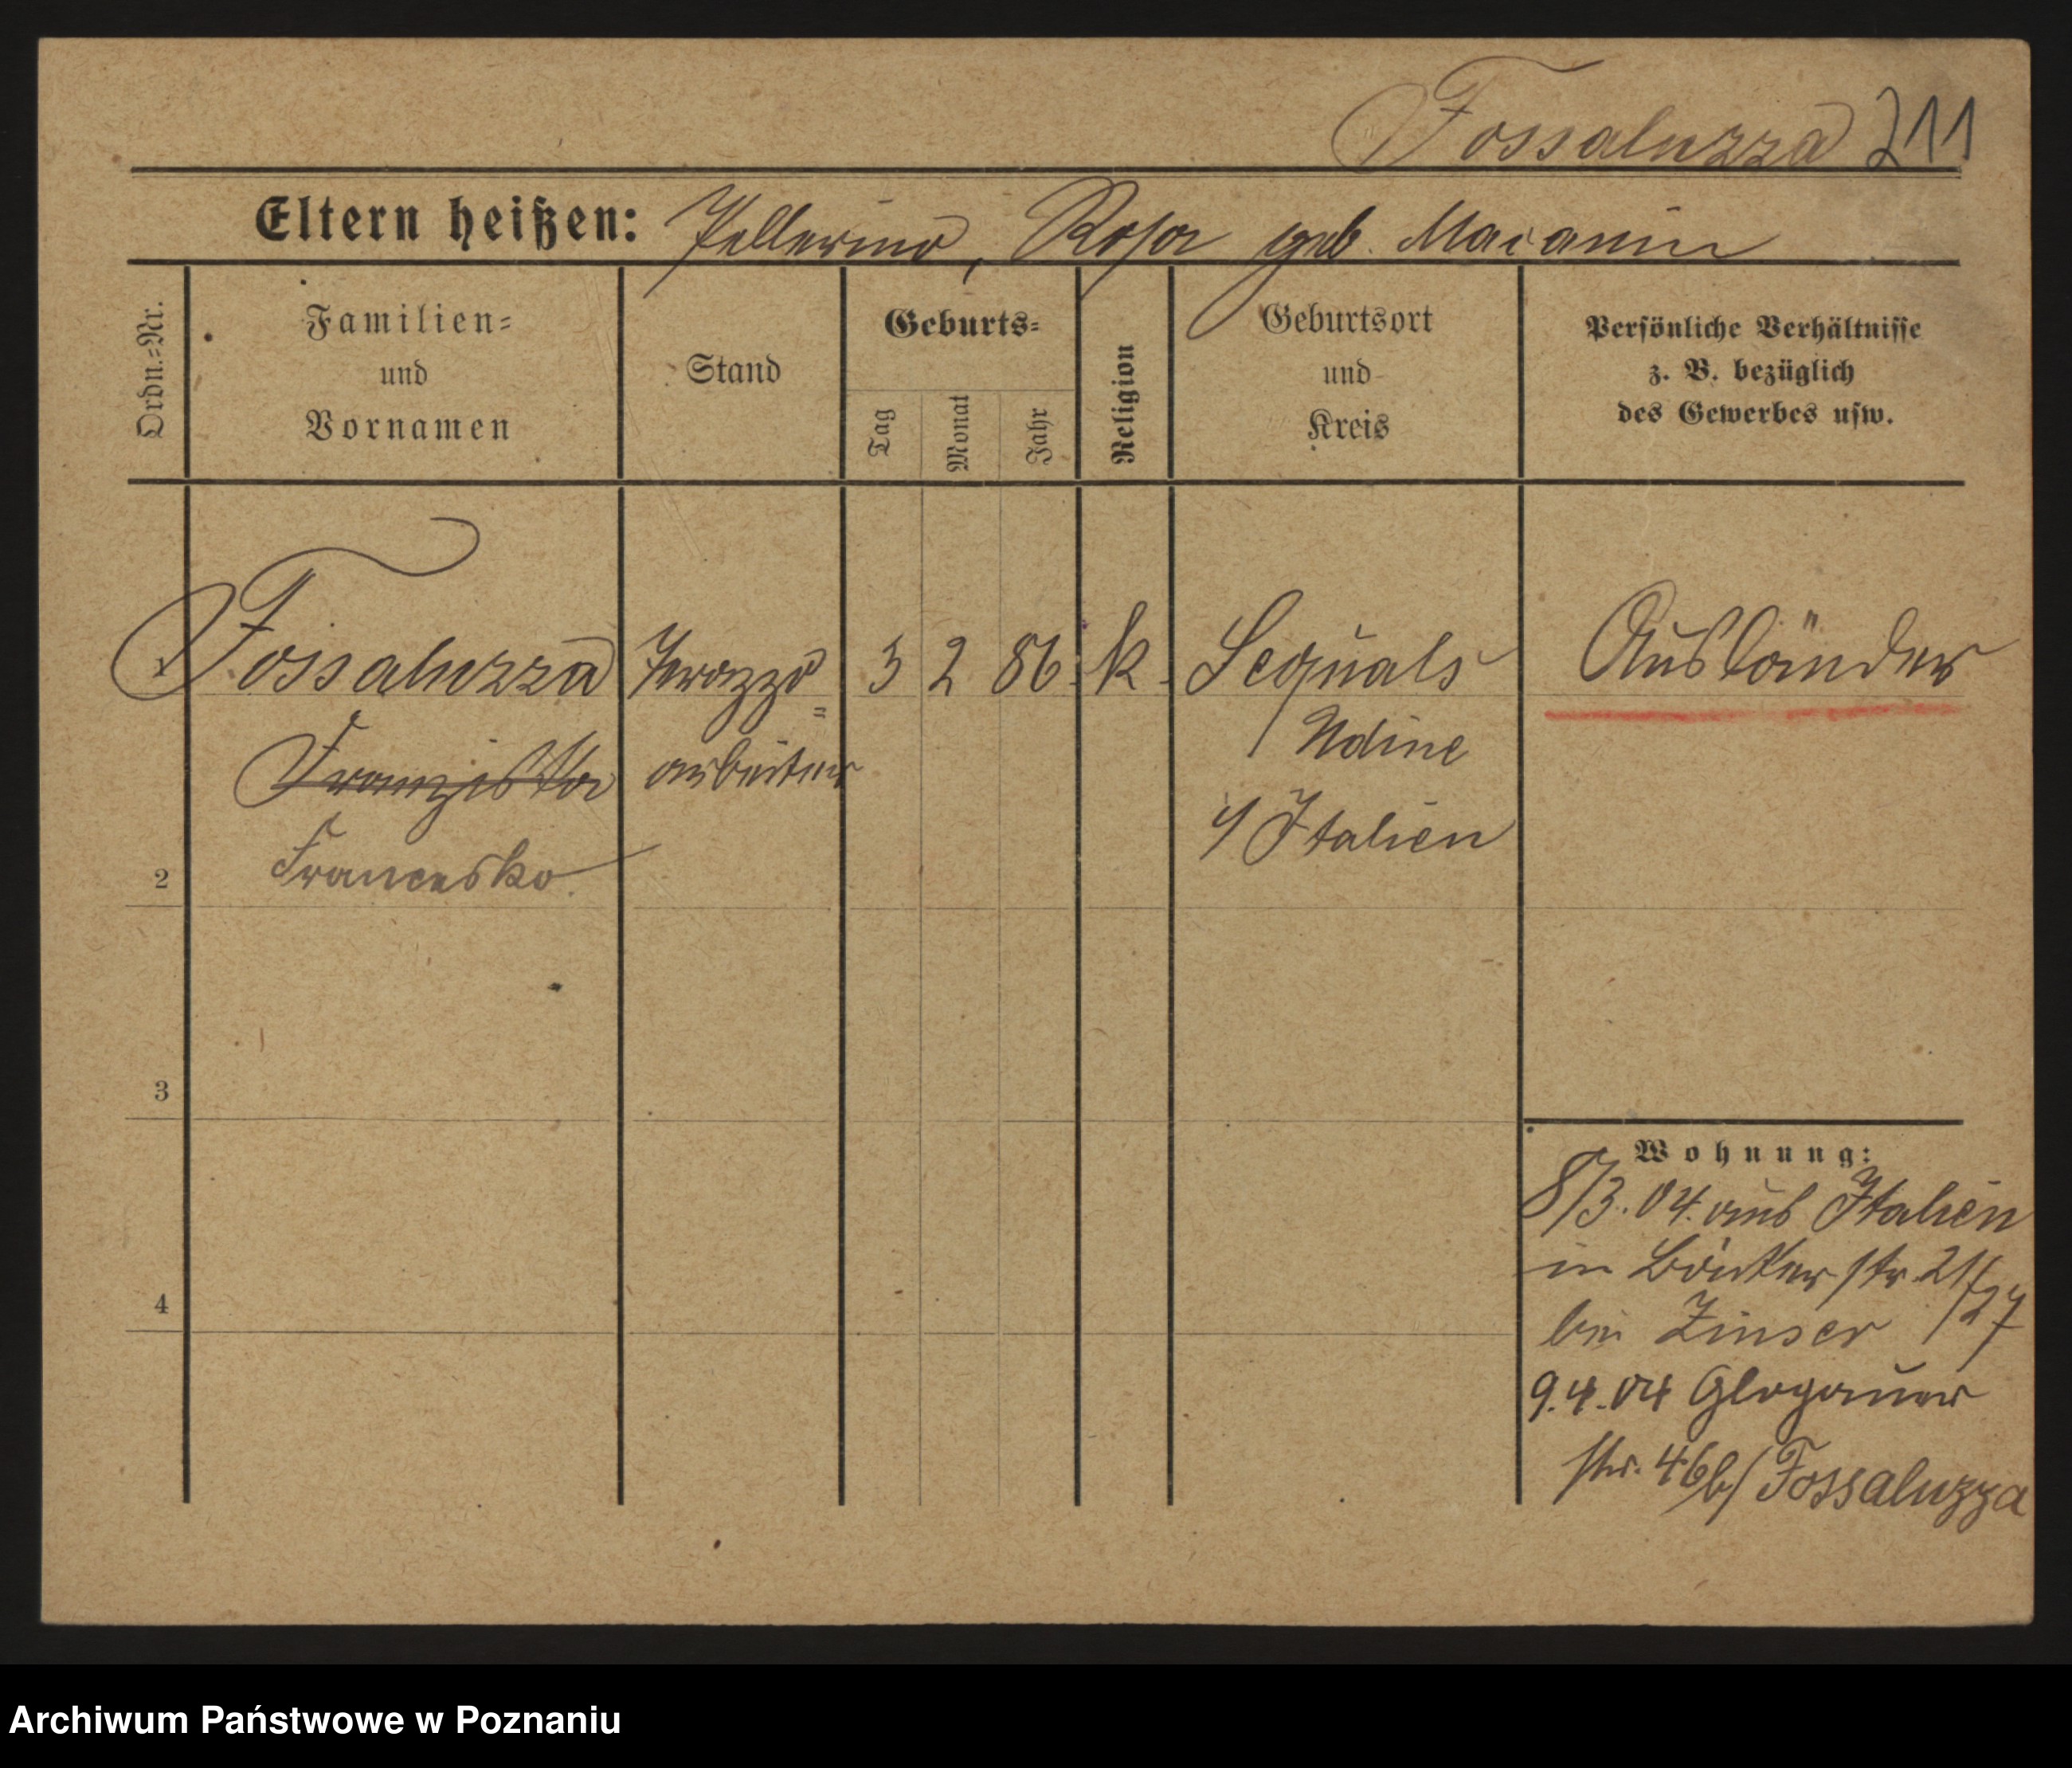 Fossaluzza 211
Eltern heißen: Pellerino, Rosa geb.
Ordn.=Nr.
Familien=
und
Vornamen
Stand
Geburts=
Tag
Monat
Jahr
Religion
Geburtsort
und
Kreis
Persönliche Verhältnisse
z. B. bezüglich
des Gewerbes usw.
1 Fossaluzza Terazzo= 3 2 86. k. Sequals Ausländer
Franziska arbeiter / Udine
2 Francesko / Italien
3
4
Wohnung:
8/3.04. aus Italien
in Bäckerstr. 21/27
bei Zinser
9.4.04 Glogauer
str. 46 b/ Fossaluzza
Archiwum Państwowe w Poznaniu